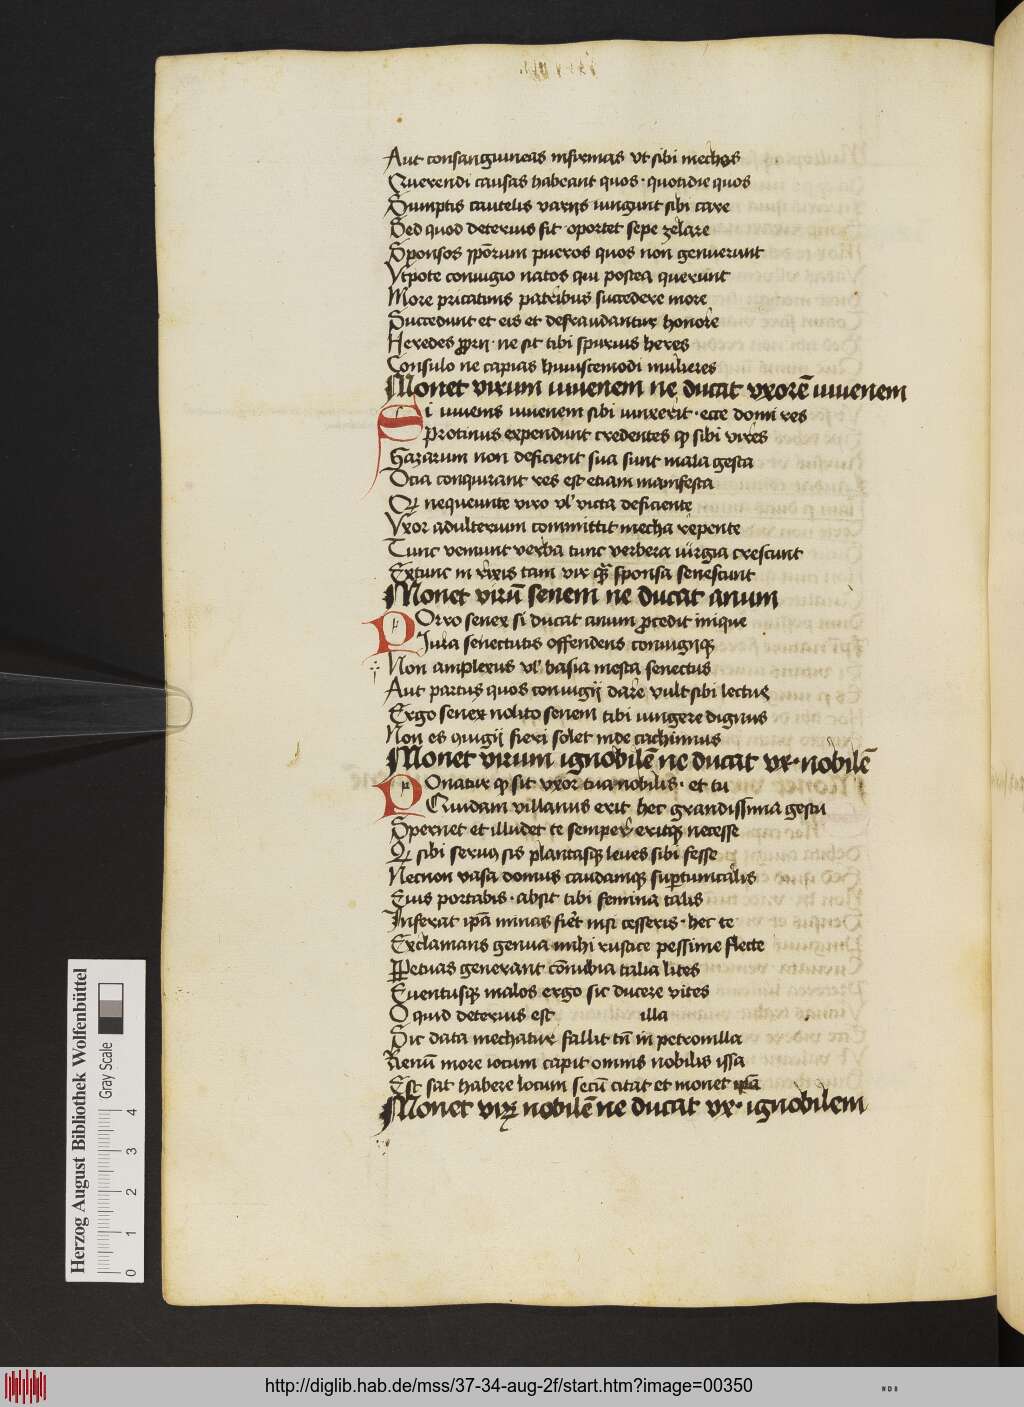 Aut consanguineas infirmas vt sibi mechos
Querendi causas habeant quos · quotidie quos
Sumptis cautelis varijs iungunt sibi care
Sed quod deterius sit oportet sepe zelare
Sponsos ipōrum pueros quos non genuerunt
Vtpote coniugio natos qui postea querunt
More pricatiuis patribus succedere more
Succedunt et eis et defraudantur honore
Heredes prorij · ne sit tibi spurius heres
Consulo ne capias huiuscemodi mulieres
Monet virum iuuenem ne ducat vxorē iuuenem
Si iuuenis iuuenem sibi iunxerit · ecce domi res
Protinus expendunt credentes ꝙ sibi vires
Gazarum non deficient sua sunt mala gesta
Ocia conquirant res est etiam manifesta
Qꝛ nequeunte viro vl' victa deficiente
Vxor adulterium committit mecha repente
Tunc veniunt verba tunc verbera iurgia crescunt
Extunc in rixis tam vir quā sponsa senescunt
Monet virū senem ne ducat anum
Porro senex si ducat anum procedit inique
Iura senectutis offendens coniugijqꝫ
Non amplexus vl' basia mesta senectus
Aut partus quos coniugij dare vult sibi lectus
Ergo senex nolito senem tibi iungere dignus
Non es ꝯiugij fieri solet inde cachinnus
Monet virum ignobilē ne ducat vx· nobilē
Ponatur ꝙ sit vxor tua nobilis · et tu
Quidam villanus erit hec grandissima gestu
Spernet et illudet te semper eritqꝫ necesse
Qꝛ sibi seruꝰ sis plantasqꝫ leues sibi fesse
Necnon vasa domus caudamqꝫ supertunicalis
Eius portabis · absit tibi femina talis
Inferat ipā minas fiet nisi cesseris · hec te
Exclamans genua mihi rustice pessime flecte
Ꝑpetuas generant cōnubia talia lites
Euentusqꝫ malos ergo sic ducere vites
O quid deterius est illa
Sic data mechatur fallit tn̄ in petronilla
Rienū more iocum capit omnis nobilis issa
Est sat habere locum secū citat et monet ipā
Monet virꝫ nobilē ne ducat vx· ignobilem
Herzog August Bibliothek Wolfenbüttel
Gray Scale
0 1 2 3 4
http://diglib.hab.de/mss/37-34-aug-2f/start.htm?image=00350